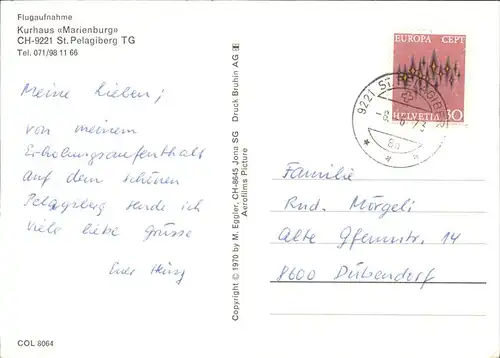 Flugaufnahme
Kurhaus «Marienburg»
CH-9221 St. Pelagiberg TG
Tel. 071/98 11 66
Meine Lieben!
von meinem
Erholungsaufenthalt
auf dem schönen
Pelagsberg sende ich
viele liebe Grüsse
Euer
COL 8064
Copyright © 1970 by M. Eggler, CH-8645 Jona SG Druck Bruhin AG
Aerofilms Picture
EUROPA CEPT
HELVETIA 30
9221 ST. PELAGIBERG
Familie
Rud. Mörgeli
Alte Gfennstr. 14
8600 Dübendorf